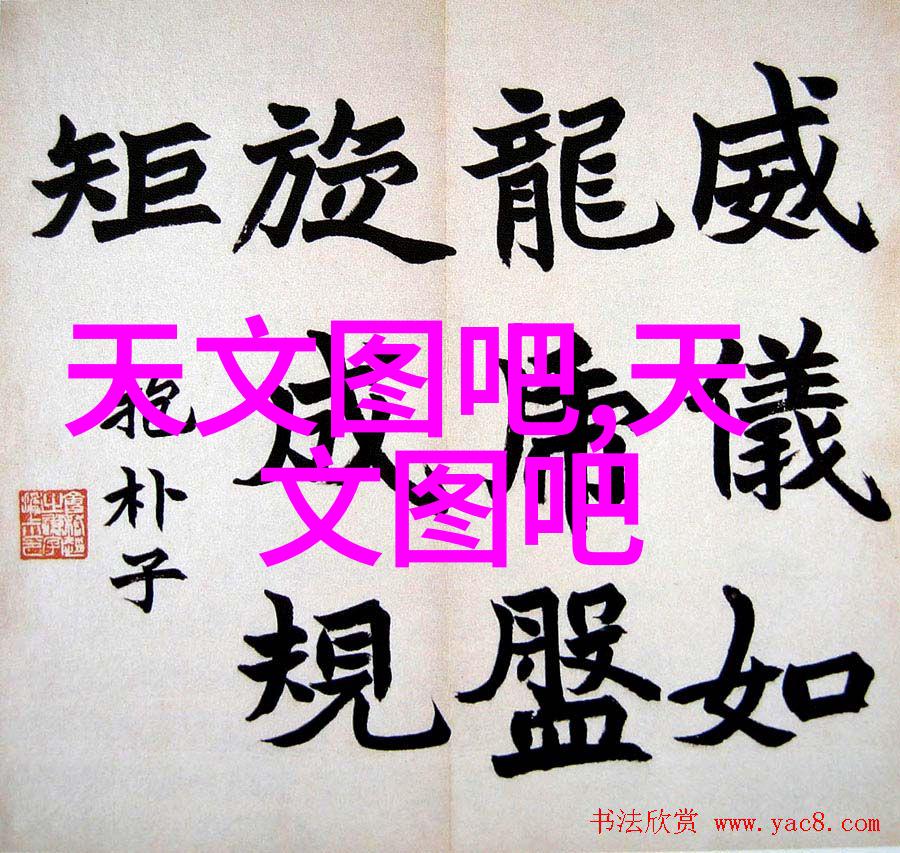 威儀如
龍虎盤
旋成規
矩
抱朴子
天文图吧,天
文图吧
书法欣赏 www.yac8.com